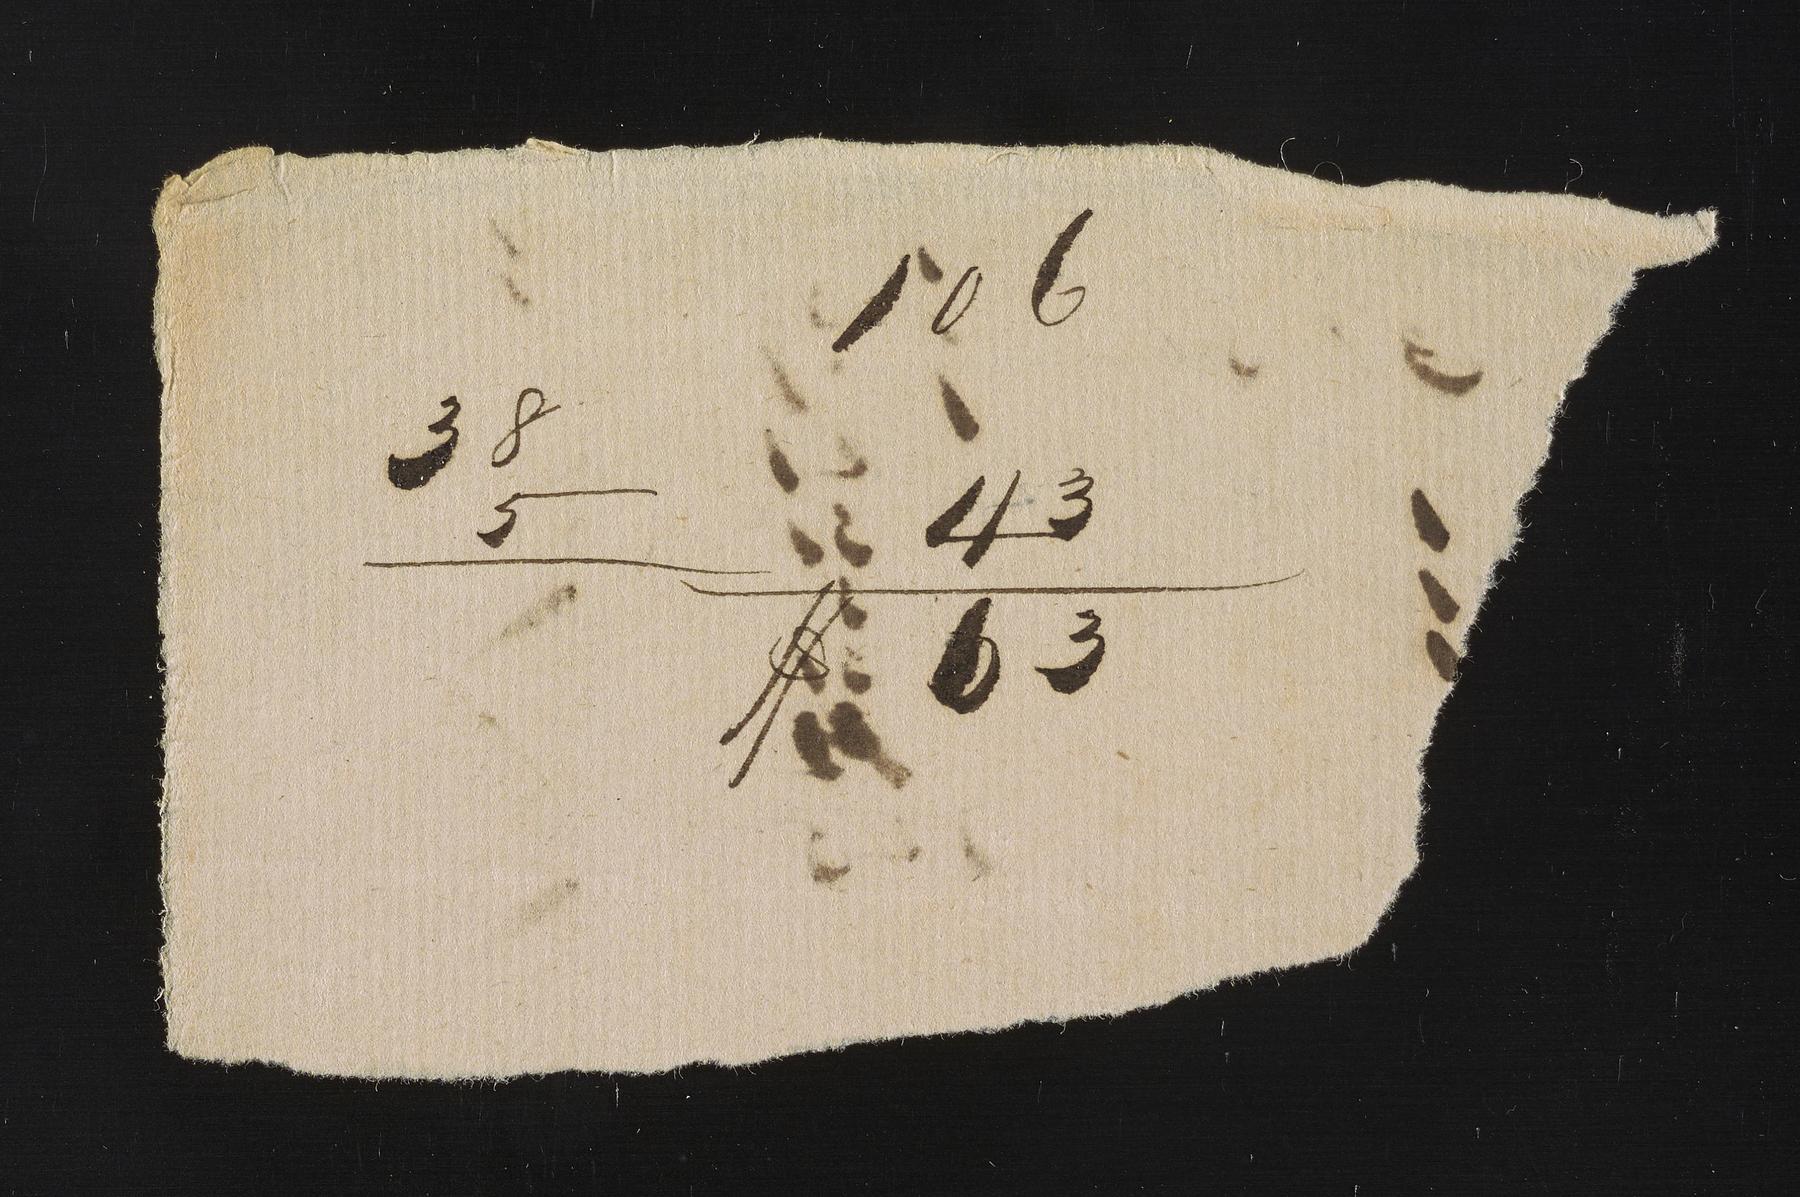 106
38
43
5
63